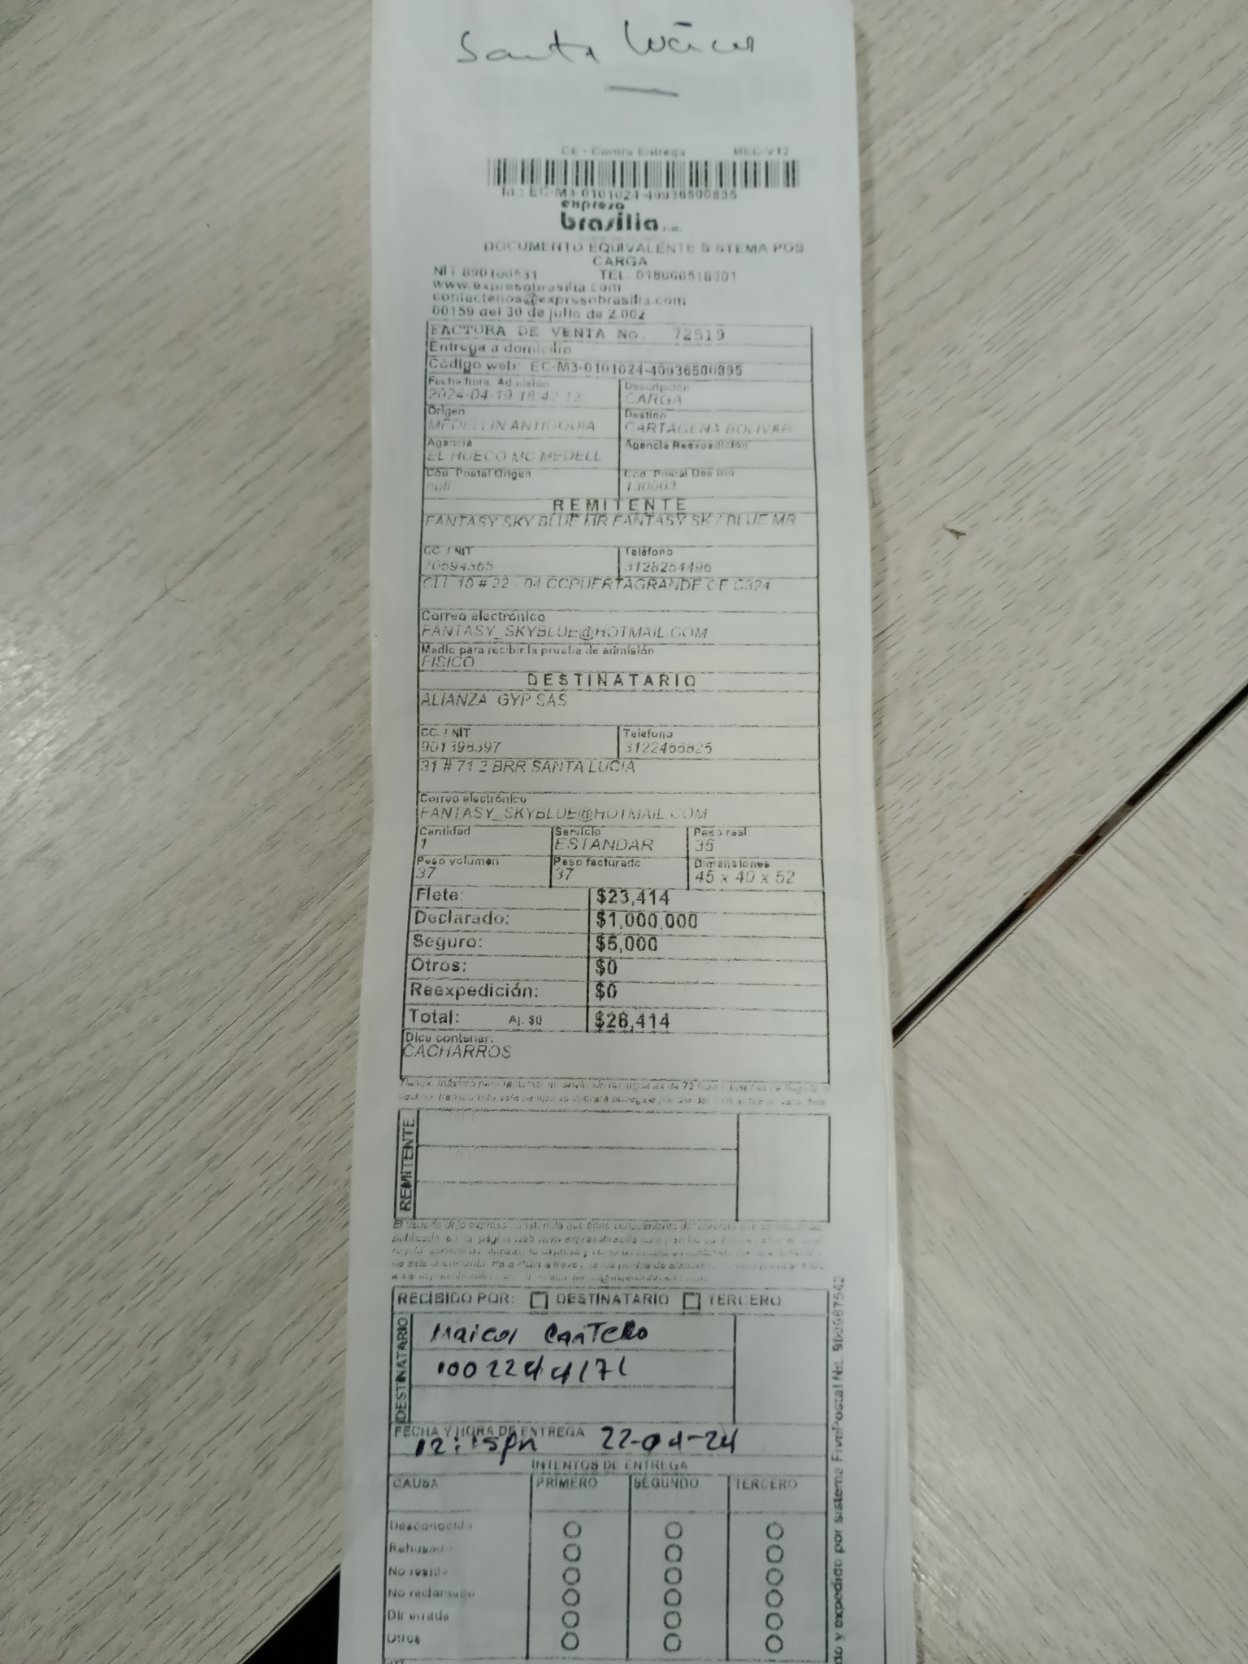 Santa Lucia
CE - Contra Entrega MEC-V12
Id.: EC-M3-0101024-40936500835
expreso
brasilia s.a.
DOCUMENTO EQUIVALENTE SISTEMA POS
CARGA
NIT 890100531 TEL. 018000518001
www.expresobrasilia.com
contactenos@expresobrasilia.com
00159 del 30 de julio de 2.002
FACTURA DE VENTA No. 72519
Entrega a domicilio
Código web: EC-M3-0101024-40936500835
Fecha hora. Admision Descripción
2024-04-19 18:42:12 CARGA
Origen Destino
MEDELLIN ANTIOQUIA CARTAGENA BOLIVAR
Agencia Agencia Reexpedición
EL HUECO MC MEDELL
Cod. Postal Origen Cod. Postal Destino
null 130003
REMITENTE
FANTASY SKY BLUE MR FANTASY SKY BLUE MR
CC / NIT Teléfono
70694365 3128254496
CLL 10 # 22 - 04 CCPUERTAGRANDE CF C324
Correo electrónico
FANTASY_SKYBLUE@HOTMAIL.COM
Medio para recibir la prueba de admisión
FISICO
DESTINATARIO
ALIANZA GYP SAS
CC / NIT Teléfono
901398397 3122468825
31 # 71 2 BRR SANTA LUCIA
Correo electrónico
FANTASY_SKYBLUE@HOTMAIL.COM
Cantidad Servicio Peso real
1 ESTANDAR 35
Peso volumen Peso facturado Dimensiones
37 37 45 x 40 x 52
Flete: $23,414
Declarado: $1,000,000
Seguro: $5,000
Otros: $0
Reexpedición: $0
Total: Aj. $0 $28,414
Dice contener:
CACHARROS
REMITENTE
RECIBIDO POR: DESTINATARIO TERCERO
DESTINATARIO
Maicol Cantero
1002244171
FECHA Y HORA DE ENTREGA
12:15pm 22-04-24
INTENTOS DE ENTREGA
CAUSA PRIMERO SEGUNDO TERCERO
Desconocido
Rehusado
No reside
No reclamado
Dir errada
Otros